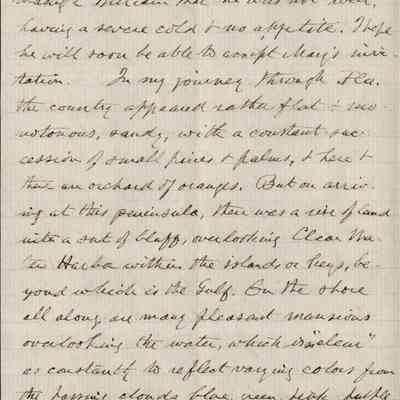 William that he was not well,
having a severe cold & no appetite. I hope
he will soon be able to accept Mary's invi-
tation. In my journey through Fla.
the country appeared rather flat & mo-
notonous, sandy, with a constant suc-
cession of small pines & palms, & here &
there an orchard of oranges. But on arriv-
ing at this peninsula, there was a rise of land
into a sort of bluff, overlooking Clear Wa-
ter Harbor within the islands or keys, be-
yond which is the Gulf. On the shore
all along are many pleasant mansions
overlooking the water, which is "clear"
as constantly to reflect varying colors from
the passing clouds blue, green, pink, purple